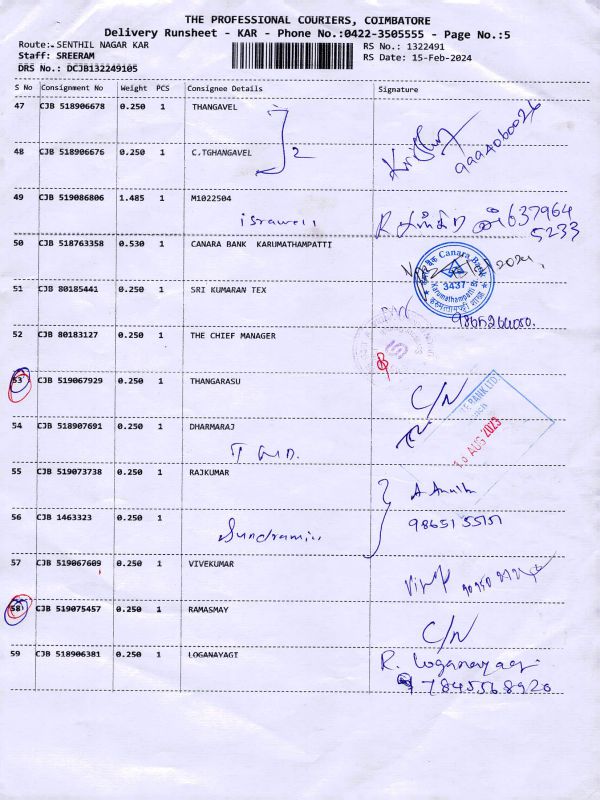 THE PROFESSIONAL COURIERS, COIMBATORE
Delivery Runsheet - KAR - Phone No.:0422-3505555 - Page No.:5
Route:- SENTHIL NAGAR KAR
RS No.: 1322491
Staff: SREERAM
RS Date: 15-Feb-2024
DRS No.: DCJB132249105
S No Consignment No Weight PCS Consignee Details Signature
47 CJB 518906678 0.250 1 THANGAVEL
48 CJB 518906676 0.250 1 C.TGHANGAVEL
2
9994060026
49 CJB 519086806 1.485 1 M1022504
637964
5233
50 CJB 518763358 0.530 1 CANARA BANK KARUMATHAMPATTI
Canara Bank
3437
51 CJB 80185441 0.250 1 SRI KUMARAN TEX
52 CJB 80183127 0.250 1 THE CHIEF MANAGER
53 CJB 519067929 0.250 1 THANGARASU
C/N
54 CJB 518907691 0.250 1 DHARMARAJ
BANK LTD.
10 AUG 2023
55 CJB 519073738 0.250 1 RAJKUMAR
56 CJB 1463323 0.250 1
57 CJB 519067609 0.250 1 VIVEKUMAR
58 CJB 519075457 0.250 1 RAMASMAY
C/N
59 CJB 518906381 0.250 1 LOGANAYAGI
R. Loganayagi
7845568920